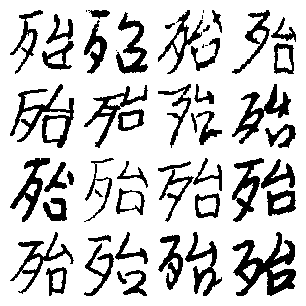 殆殆殆殆
殆殆殆殆
殆殆殆殆
殆殆殆殆